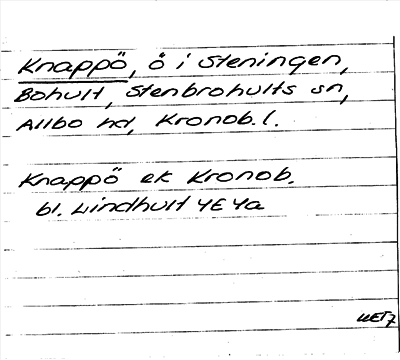 Knappö, ö i Steningen,
Bohult, Stenbrohults sn,
Allbo hd, Kronob. l.
Knappö ek Kronob.
bl. Lindhult 4E 4a